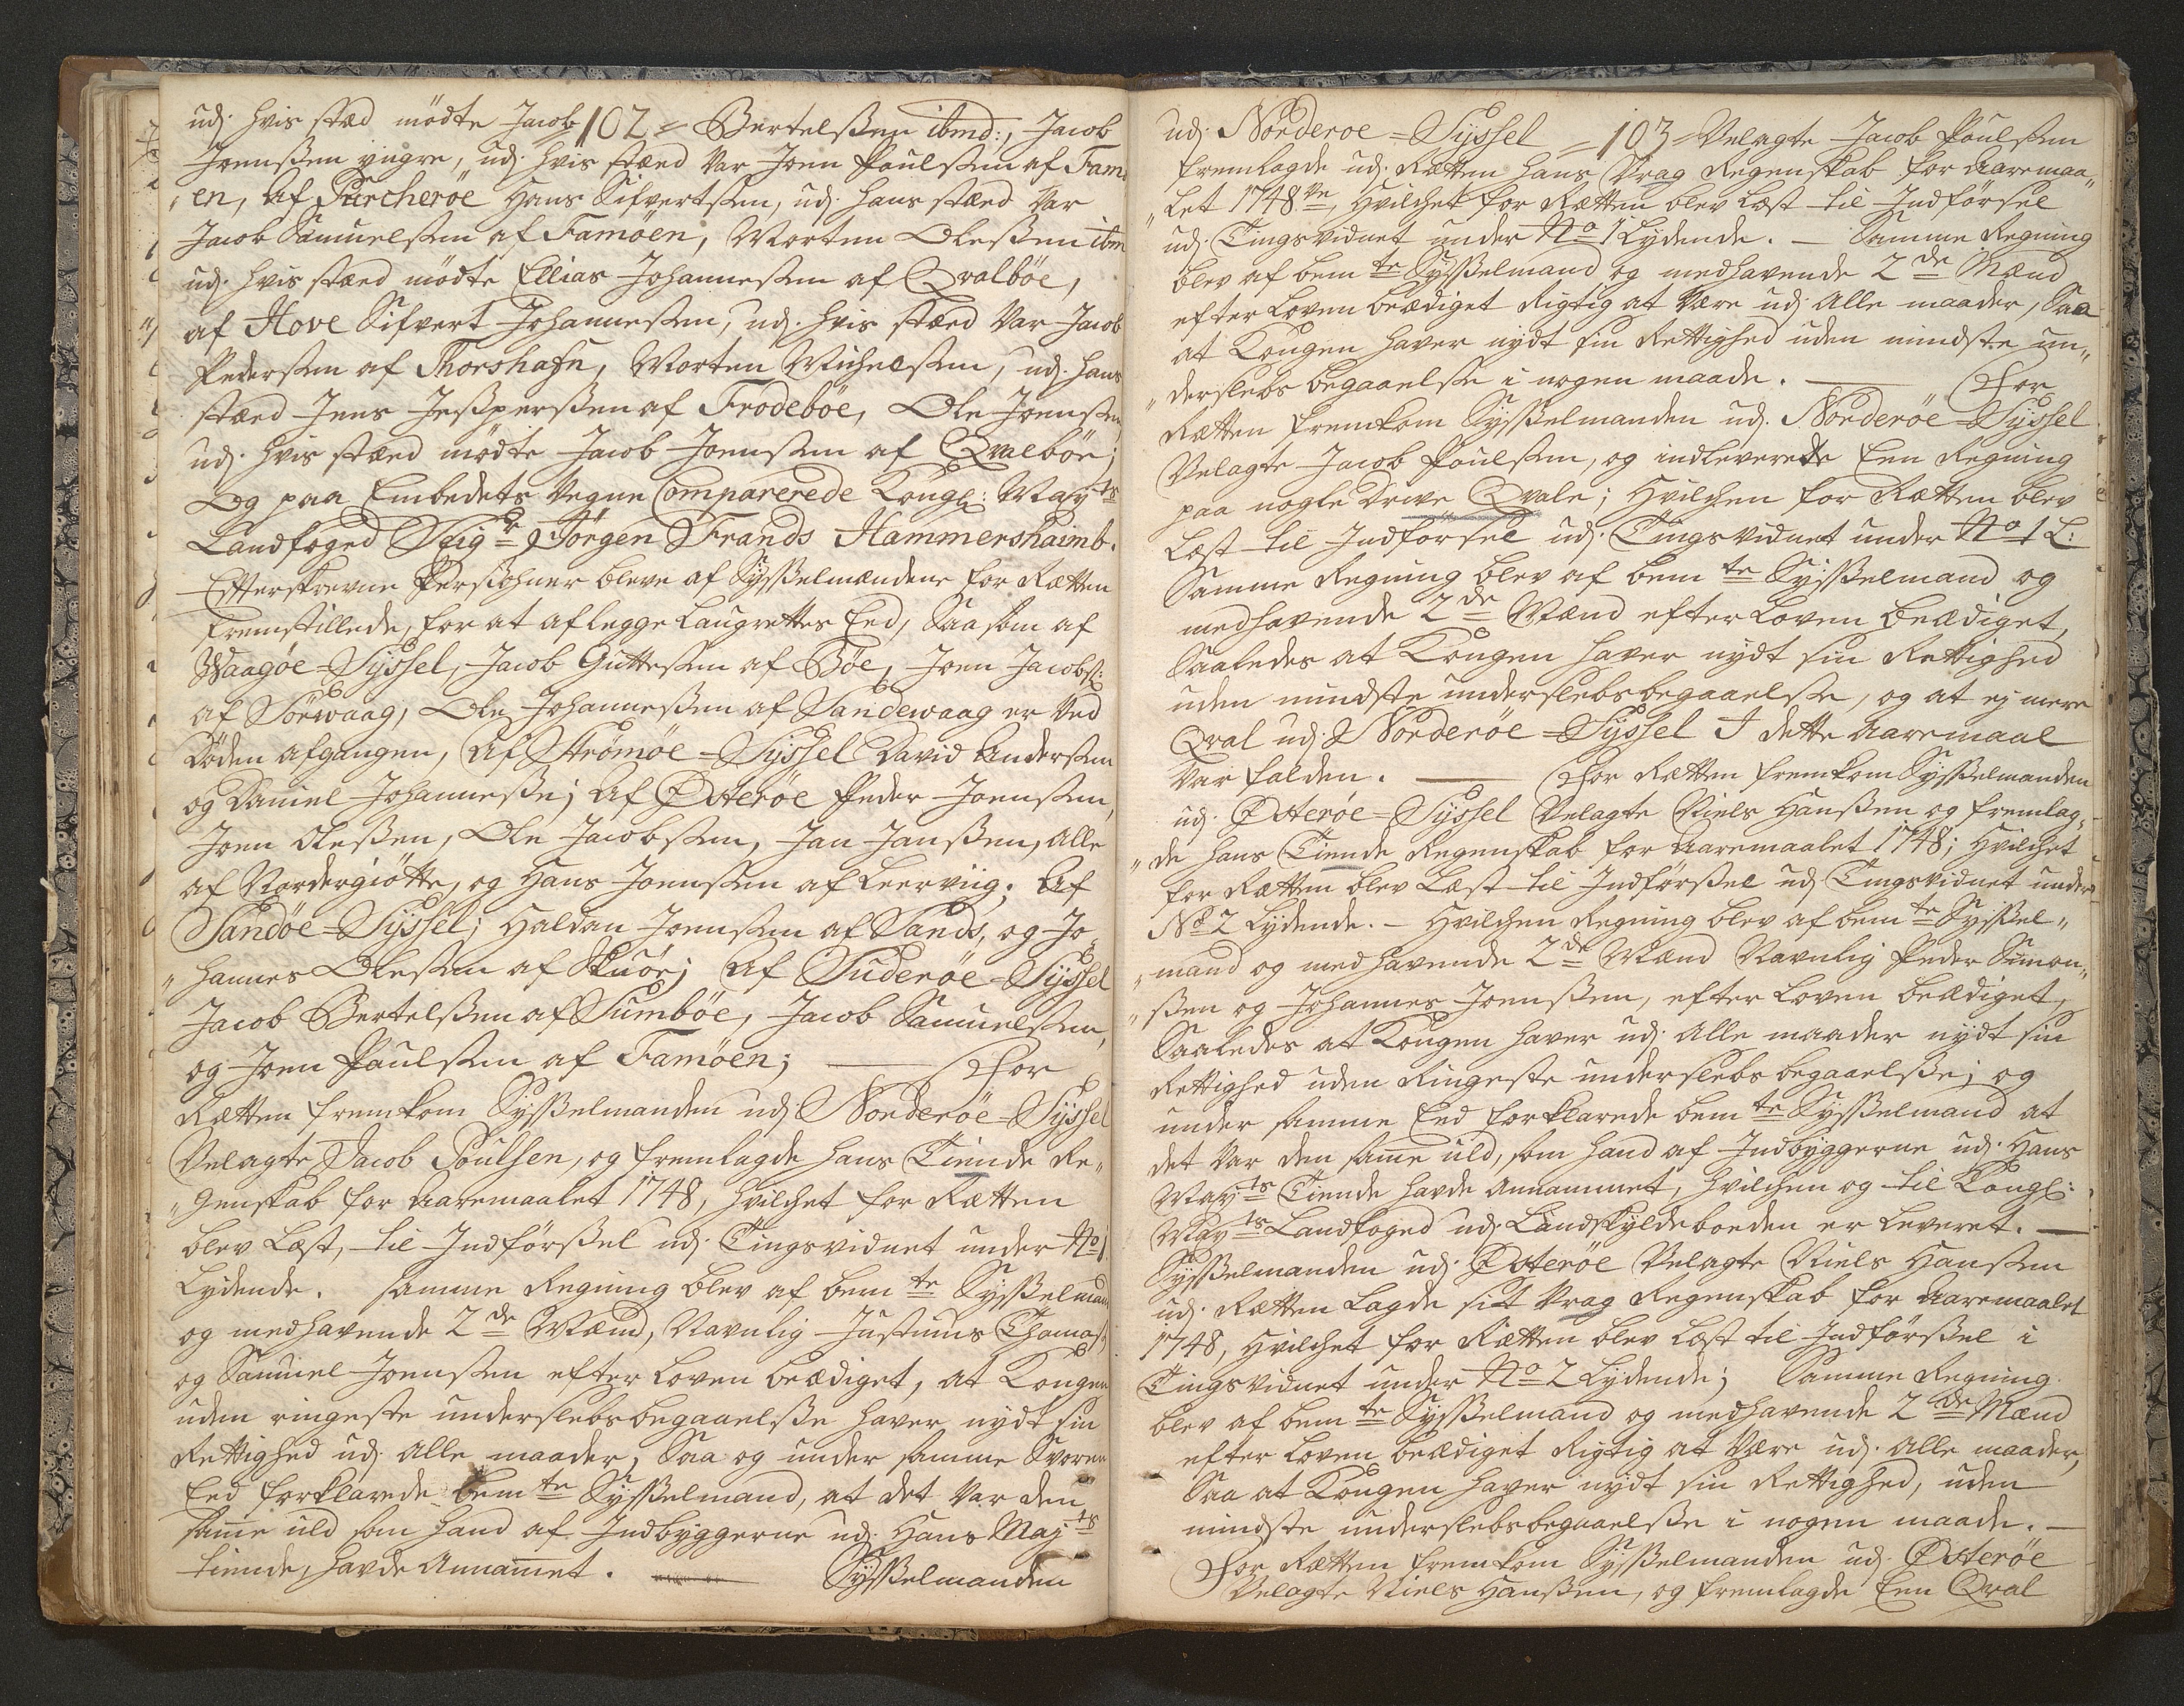 102
udj hvis stæd mødte Jacob Bertelßen ibmd:, Jacob
Joenßen yngre, udj hvis stæd var Joen Poulßen af Famö
„en, Af Pürcheröe Hans Sifvertßen, udj hans stæd var
Jacob Samuelßen af Famöen, Morten Oleßen ibm
udj hvis stæd mødte Ellias Johannesßen af Qvalböe,
af Hove Sifvert Johannesßen, udj hvis stæd var Jacob
Pederßen af Thorshafn, Morten Michelßen, udj hans
stæd Jens Jesperßen af Frodeböe, Ole Joenßen,
udj hvis stæd mødte Jacob Joenßen af Qvalböe;
Og paa Embedets vegne Comparerede Kongl: May.ts
Landfoged Seig.r Jörgen Frands Hammershaimb.
Efterskrevne Persohner bleve af Sysselmændene for Rætten
fremstillede, for at aflegge Laugrettes Eed, Saa som af
Waagöe=Sÿssel, Jacob Guttesßen af Böe, Joen Jacobs:
af Sörwaag, Ole Johannesßen af Sandewaag er ved
döden afgangen, Af Strömöe=Sÿssel David Anderßen
og Daniel Johannesße; Af Österöe Peder Joenßen,
Joen Oleßen, Ole Jacobßen, Jan Janßen, alle
af Nordergiötte, og Hans Joenßen af Leerviig. Af
Sandöe=Sÿssel; Haldan Joenßen af Sands, og Jo
„hannes Oleßen af Skuöe; Af Suderöe=Sÿssel
Jacob Bertelßen af Sumböe, Jacob Samuelßen,
og Joen Poulßen af Famöen; For
Rætten fremkom Sysselmanden udj Norderöe=Sÿssel
Velagte Jacob Poulsen, og fremlagde hans Tiende Re„
„genskab for Aaremaalet 1748, hvilchet for Rætten
blev Læst, til Indförßel udj Tingsvidnet under No 1
Lydende. Samme Regning blev af bem.te Sysselmand
og medhavende 2de Mænd, Navnlig Justinus Thomas:
og Samuel Joenßen efter Loven beædiget, at Kongen
uden ringeste underslebsbegaaelße haver nydt sin
Rettighed udj Alle maader, Saa og under samme Svoren
Eed forklarede bem.te Sysselmand, at det var den
samme uld som hand af Indbyggerne udj Hans Maj.ts
tiende, havde Annammet. Sysselmanden
103
udj Norderoe=Sÿssel Velagte Jacob Poulßen
fremlagde udj Rætten hans Vrag Regenskab for Aaremaa„
„let 1748.ve, Hvilchet for Rætten blev Læst til Indförsel
udj Tingsvidnet under No 1 Lydende. — Samme Regning
blev af bem.te Sysselmand og medhavende 2de Mænd
efter Loven beædiget Rigtig at være udj Alle maader, Saa
at Kongen haver nydt sin Rettighed uden mindste un„
„derslebs begaaelße i nogen maade. — For
Rætten fremkom Sysselmanden udj Norderöe=Sÿssel
Velagte Jacob Poulßen, og indleverede Een Regning
paa nogle Drive Qvale; Hvilchen for Rætten blev
Læst til Indförsel udj Tingsvidnet under No 1 L:
Samme Regning blev af bem.te Sysselmand og
medhavende 2de Mænd efter Loven beædiget,
Saaledes at Kongen haver nydt sin Rettighed
uden mindste underslebsbegaaelße, og at ej mere
Qval udj Norderöe=Sÿssel I dette Aaremaal
var falden. — For Rætten fremkom Sysselmanden
udj Österöe=Sÿssel Velagte Niels Hanßen og fremlag„
„de hans Tiende Regenskab for Aaremaalet 1748; Hvilchet
for Rætten blev Læst til Indförßel udj Tingsvidnet under
No 2 Lydende. — Hvilchen Regning blev af bem.te Syssel„
„mand og medhavende 2de Mænd Navnlig Peder Simon„
„ßen og Johannes Joenßen, efter Loven beædiget,
Saaledes at Kongen haver udj Alle maader nydt sin
Rettighed uden Ringeste underslebs begaaelße; og
under samme Eed forklarede bem.te Sysselmand at
det var den same uld, som hand af Indbyggerne udj Hans
May.ts Tiende havde Annammet, hvilchen og til Kongl:
May.ts Landfoged udj Landskyldeboeden er Leveret. —
Sysselmanden udj Österöe Velagte Niels Hanßen
udj Rætten Lagde sit Vrag Regenskab for Aaremaalet
1748, Hvilchet for Rætten blev Læst til Indförßel i
Tingsvidnet under No 2 Lydende; Samme Regning
blev af bem.te Sysselmand og medhavende 2de Mænd
efter Loven beædiget Rigtig at være udj Alle maader,
Saa at Kongen haver nydt sin Rettighed, uden
mindste underslebsbegaaelße i nogen maade. —
For Rætten fremkom Sysselmanden udj Österöe
Velagte Niels Hanßen, og fremlagde Een Qval